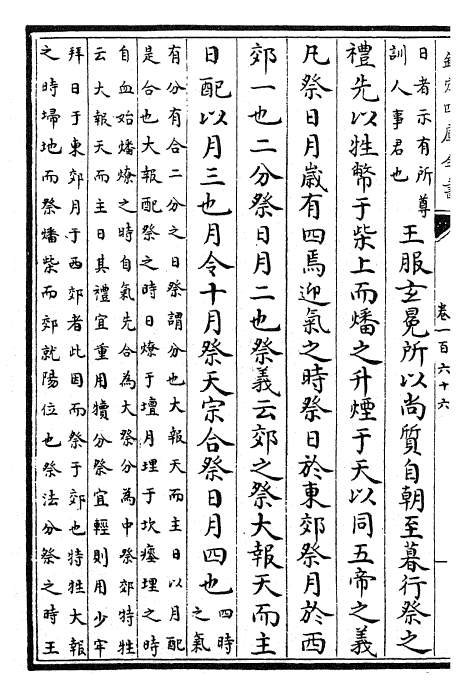 欽定四庫全書
卷一百六十六
一
日者示有所尊
訓人事君也
王服玄冕所以尚質自朝至暮行祭之
禮先以牲幣于柴上而燔之升煙于天以同五帝之義
凡祭日月歲有四焉迎氣之時祭日於東郊祭月於西
郊一也二分祭日月二也祭義云郊之祭大報天而主
日配以月三也月令十月祭天宗合祭日月四也
四時
之氣
有分有合二分之日祭謂分也大報天而主日以月配
是合也大報配祭之時日燎于壇月埋于坎瘞埋之時
自血始燔燎之時自氣先合為大祭分為中祭郊特牲
云大報天而主日其禮宜重用犢分祭宜輕則用少牢
拜日于東郊月于西郊者此因而祭于郊也特牲大報
之時埽地而祭燔柴而郊就陽位也祭法分祭之時王